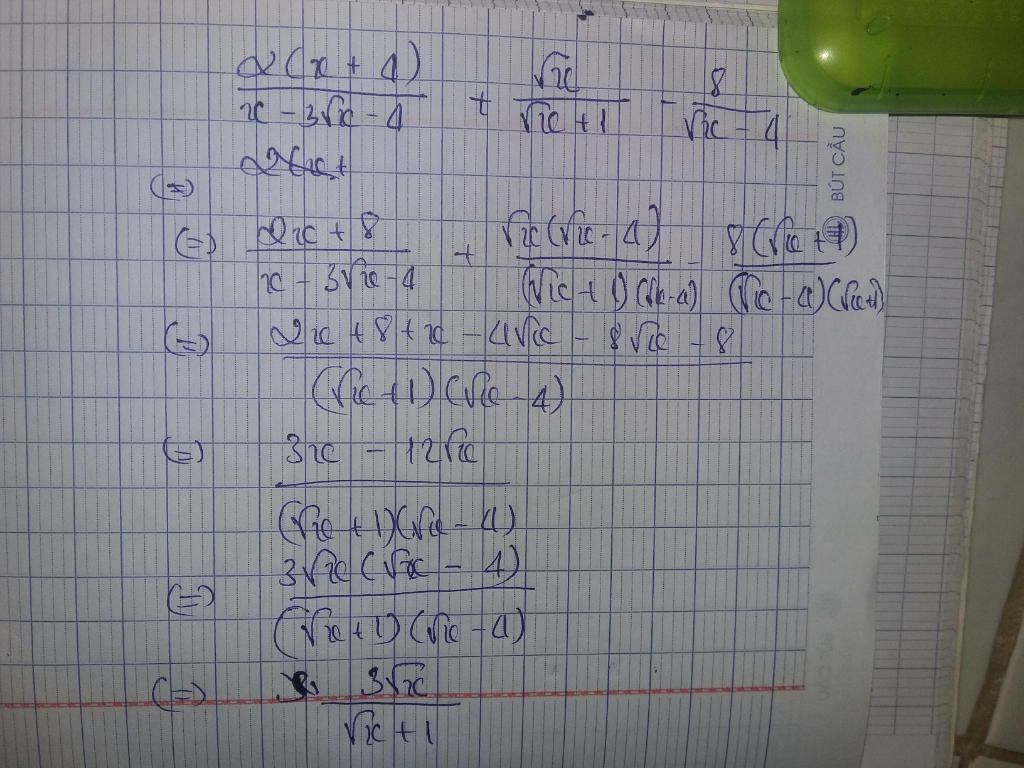 2(x + 4)/(x - 3√x - 4) + √x/(√x + 1) - 8/(√x - 4)
BÚT CẦU
(=)
(=) (2x + 8)/(x - 3√x - 4) + √x(√x - 4)/((√x + 1)(√x - 4)) - 8(√x + 1)/((√x - 4)(√x + 1))
(=) (2x + 8 + x - 4√x - 8√x - 8)/((√x + 1)(√x - 4))
(=) (3x - 12√x)/((√x + 1)(√x - 4))
(=) 3√x(√x - 4)/((√x + 1)(√x - 4))
(=) 3√x/(√x + 1)